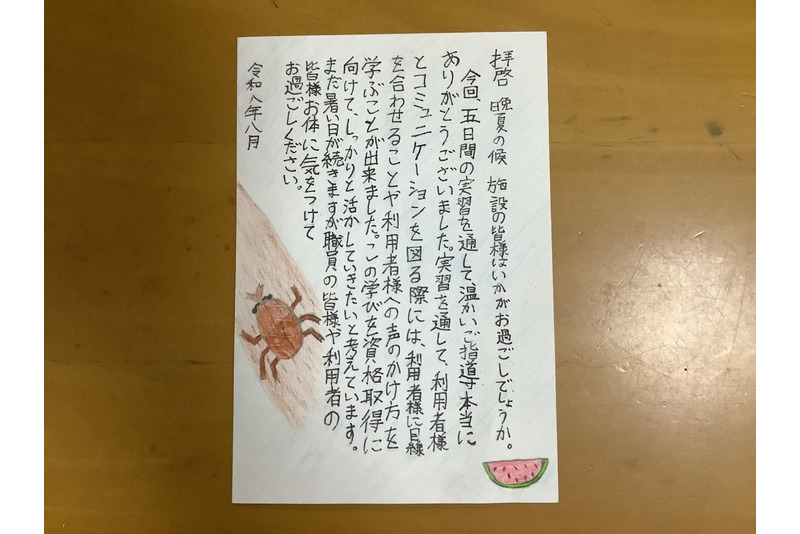 拝啓 晩夏の候 施設の皆様はいかがお過ごしでしょうか。
今回、五日間の実習を通して、温かいご指導本当に
ありがとうございました。実習を通して、利用者様
とコミュニケーションを図る際には、利用者様に目線
を合わせることや利用者様への声のかけ方を
学ぶことが出来ました。この学びを資格取得に
向けて、しっかりと活かしていきたいと考えています。
まだ暑い日が続きますが職員の皆様や利用者の
皆様お体に気をつけて
お過ごしください。
令和八年八月